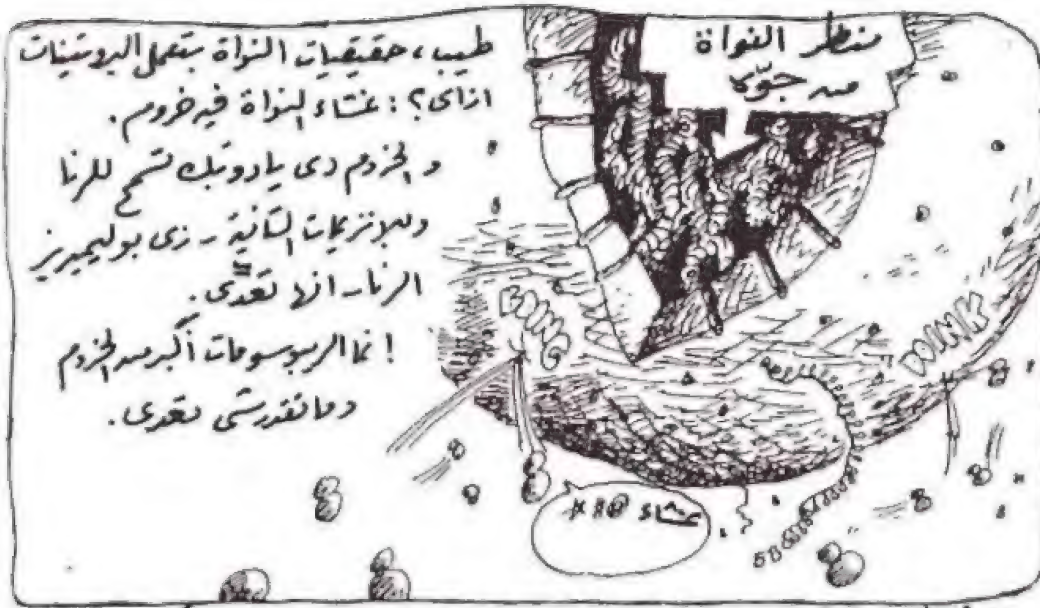 طيب، حقيقيات النواة بتعمل البروتينات
ازاى؟: غشاء النواة فيه خروم.
و الخروم دى يادوبك تسمح للرنا
وللإنزيمات التانية - زى بوليميريز
الرنا - انها تعدّى.
إنما الريبوسومات أكبر من الخروم
وماتقدرشى تعدى.
منظر النواة
من جوّه
BOING
DOINK
غشاء @!*